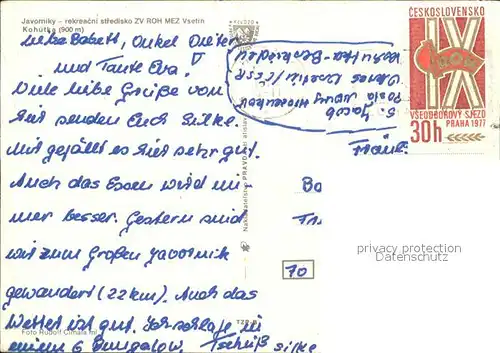 Javorníky – rekreační středisko ZV ROH MEZ Vsetín
Kohútka (900 m)
Liebe Babett, Onkel Dieter
und Tante Eva!
Viele liebe Grüße von
hier senden Euch Silke.
Mir gefällt es hier sehr gut.
Auch das Essen wird im-
mer besser. Gestern sind
wir zum Großen Javornik
gewandert (22 km). Auch das
Wetter ist gut. Ich schlafe in
einem 6 Bungalow. Tschüß Silke
Foto Rudolf
S. Jacob
Posta Novy Hrozenkov
Okres Vsetin / CSSR
Kohutka
Nakladatelství PRAVDA
ČESKOSLOVENSKO
IX
VŠEODBOROVÝ SJEZD
PRAHA 1977
30h
70
PRIVATE COLLECTION
watermarked photo